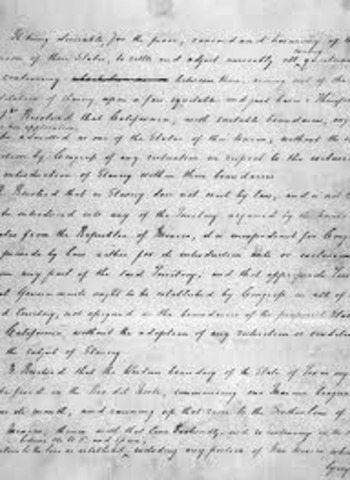 It being desirable, for the peace, concord and harmony of the
of these States, to settle and adjust amicably all questions
existing
controversy between them, arising out of the
institution of Slavery, upon a fair equitable and just basis: Therefore
1st Resolved that California, with suitable boundaries, ought
upon her application,
be admitted as one of the States of this Union, without the
by Congress of any restriction in respect to the exclusion
introduction of Slavery within those boundaries
2. Resolved that as Slavery does not exist by law, and is not
be introduced into any of the Territory acquired by the United
States from the Republic of Mexico, it is inexpedient for Congress
provide by law either for its introduction into or exclusion
from any part of the said Territory; and that appropriate
Governments ought to be established by Congress in all of
Territory, not assigned as the boundaries of the proposed State
California, without the adoption of any restriction or condition
the subject of Slavery
3. Resolved that the Western boundary of the State of Texas ought
be fixed on the Rio del Norte, commencing one Marine league
its mouth, and running up that river to the Southern line of
Mexico; thence with that line Eastwardly, and so continuing in the
between the U.S. and Spain,
line as established, excluding any portion of New Mexico